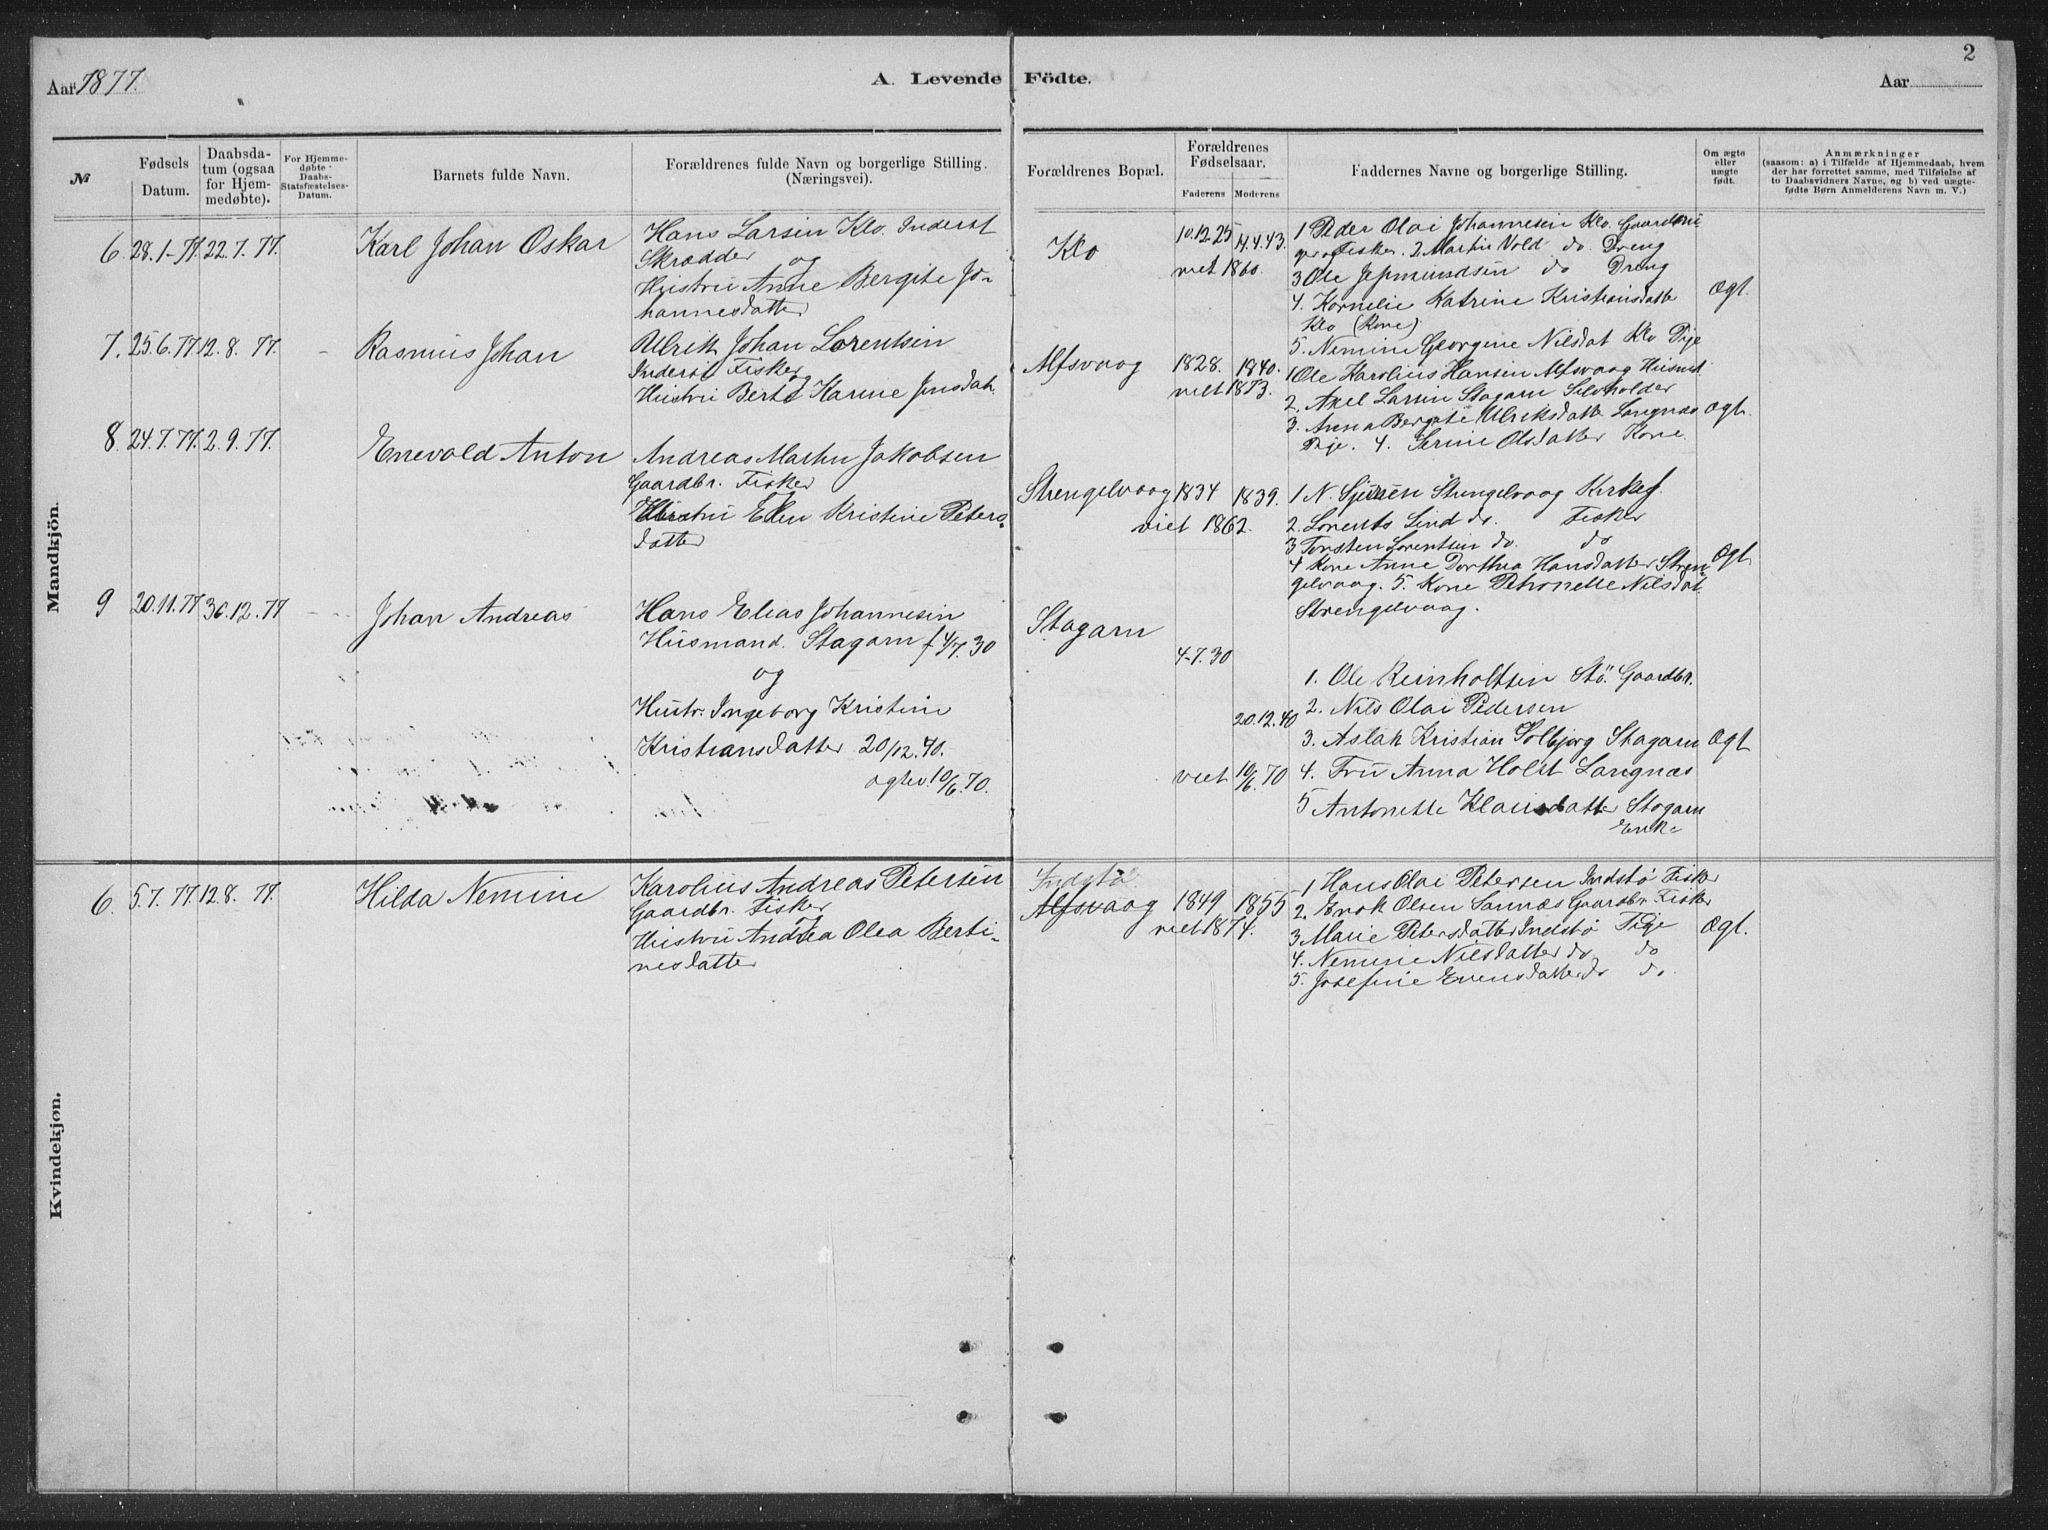 2
Aar 1877.
A. Levende Födte.
Aar
№
Fødsels Datum.
Daabsdatum (ogsaa for Hjemmedøbte).
For Hjemmedøbte Daabs-Statsfæstelses-Datum.
Barnets fulde Navn.
Forældrenes fulde Navn og borgerlige Stilling. (Næringsvei).
Forældrenes Bopæl.
Forældrenes Fødselsaar.
Faderens Moderens
Faddernes Navne og borgerlige Stilling.
Om ægte eller uægte født.
Anmærkninger
(saasom: a) i Tilfælde af Hjemmedaab, hvem der har forrettet samme, med Tilføielse af to Daabsvidners Navne, og b) ved uægtefødte Børn Anmelderens Navn m. V.)
Mandkjön.
6. 28.1-77. 22.7.77. Karl Johan Oskar
Hans Larsen Klo. Inderst
Skrædder og
Hustru Anne Bergite Jo-
hannesdatter
Klo
10.12.25 14.4.43.
viet 1860.
1 Peder Olai Johannesen Klo. Gaardbru
ger o Fisker. 2. Martin Vold do. Dreng
3 Ole do Dreng
4. Kornelie Katrine Kristiansdatte
Klo (Kone)
5. Nemine Georgine Nilsdat Klo Pige
Ogt.
7. 25.6.77. 12.8.77. - Rasmus Johan
Ulrik Johan Lorentsen
Inderst Fisker og
Hustru Berte Karine Jensdat.
Alfsvaag
1828. 1840.
viet 1873.
1 Ole Karolius Hansen Alfsvaag Husmd
2. Axel Larsen Stagarn Selvholder
3. Anna Bergite Ulriksdatte Langnæs
Pige. 4. Serine Olsdatter Kone
Ogt.
8. 24.7.77. 2.9.77. Enevold Anton
Andreas Martin Jakobsen
Gaardbr. Fisker
og
Hustru Elen Kristine Peters-
datter
Strengelvaag 1834 1839.
viet 1862.
1 N. Strengelvaag Kirkef.
2. Lorents Lind do. Fisker
3 Torsten Lorentsen do. do
4 Kone Anne Dorthea Hansdatter Stren-
gelvaag. 5. Kone Petronelle Nilsdat
Strengelvaag.
Ogt
9 20.11.77 30.12.77 - - Johan Andreas
Hans Elias Johannesen
Husmand. Stagarn f 4/7.30
og
Hustr. Ingeborg Kristine
Kristiansdatter 20/12.40.
ogtev. 10/6.70.
Stagarn
4-7.30
20.12.40
viet 10/6.70
1. Ole Reinholtsen Stö. Gaardbr.
2. Nils Olai Pedersen
3. Aslak Kristian Solbjorg Stagarn
4. Fru Anna Holst Langnæs
5 Antonette Klausdatter Stagarn
Enke
Ogt
Kvindekjøn.
6. 5.7.77. 12.8.77. Hilda Nemine
Karolius Andreas Petersen
Gaardbr. Fisker
og
Hustru Andrea Olea Berti-
nesdatter
Indstö
Alfsvaag 1849 1855
viet 1874.
1 Hans Olai Petersen Indstö Fisker
2. Enok Olsen Sannæs Gaardbr Fisker
3. Marie Petersdatter Indstö Pige
4. Nemine Nilsdatter do do
5. Josefine Evensdatter do do
Ogt.